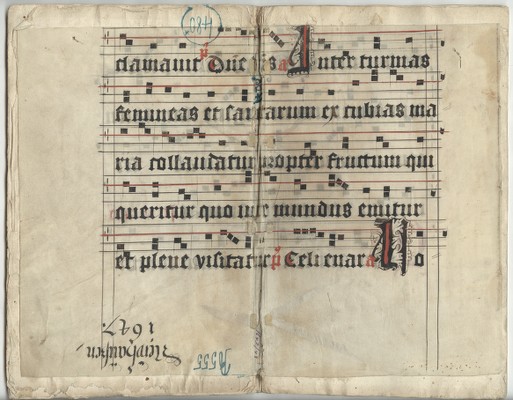 480
clamauit a Inter turmas
femineas et ma
ria collaudatur propter fructum qui
queritur quo mundus emitur
et plene visitatur Celi enar a No
1647.
N555